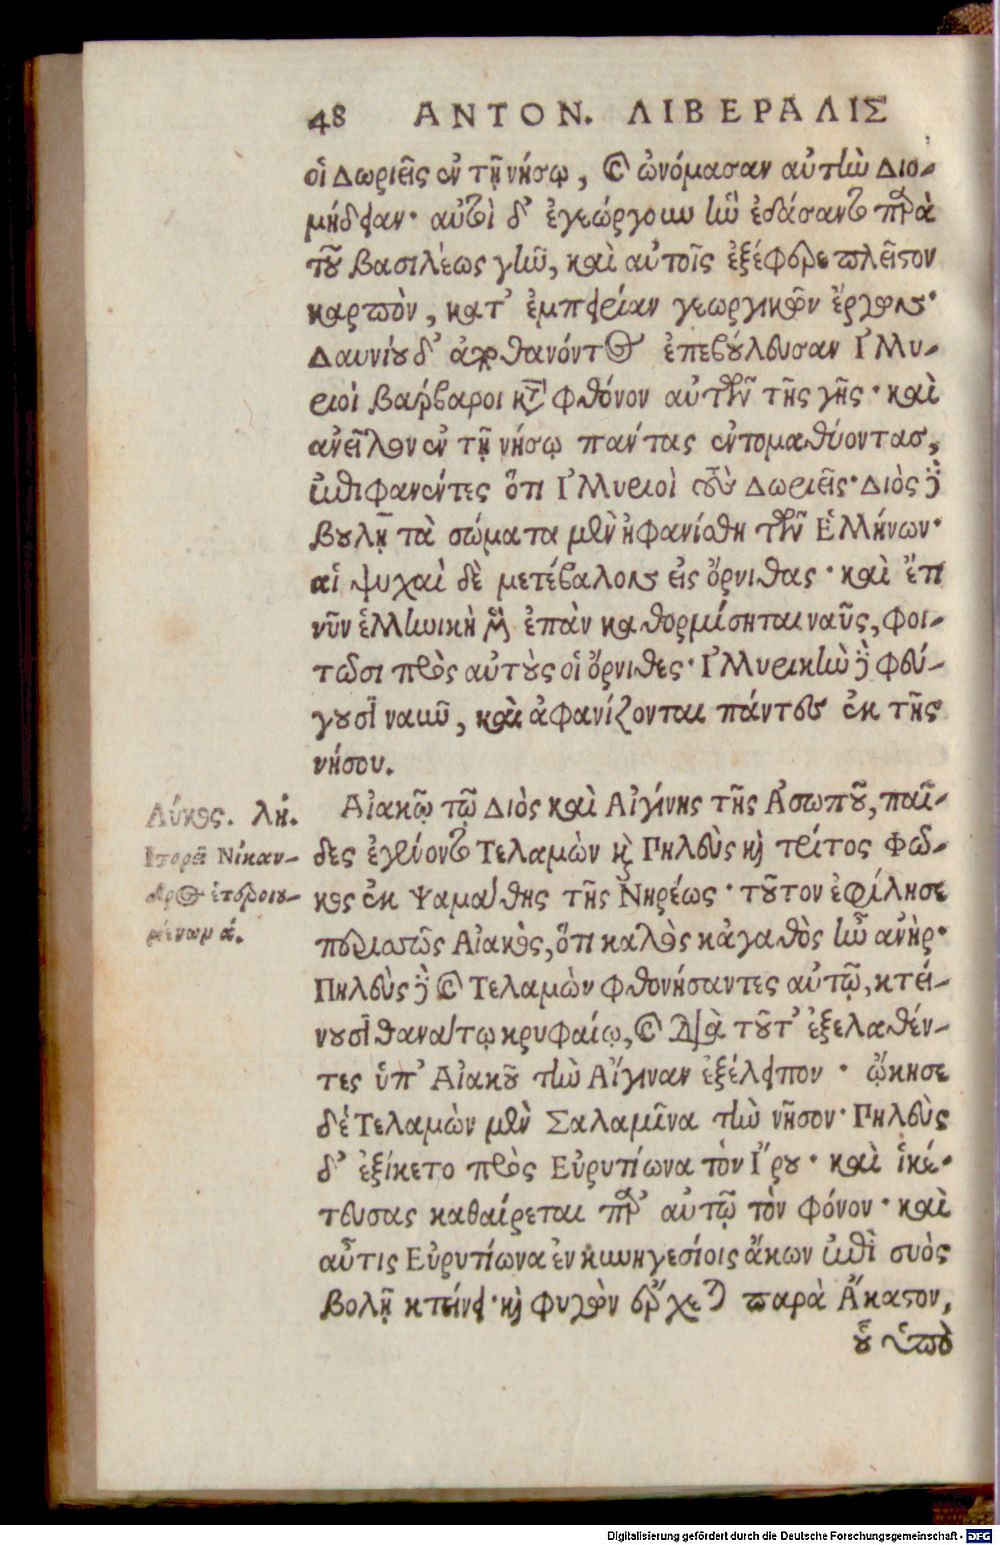 48 ΑΝΤΟΝ. ΛΙΒΕΡΑΛΙΣ
οἱ Δωριεῖς ἐν τῇ νήσῳ, καὶ ὠνόμασαν αὐτὴν Διο-
μήδειαν· αὐτοὶ δ' ἐγεώργουν ἣν ἐδάσαντο παρὰ
τοῦ βασιλέως γῆν, καὶ αὐτοῖς ἐξέφερε πλεῖστον
καρπὸν, κατ' ἐμπειρίαν γεωργικῶν ἔργων·
Δαυνίου δ' ἀποθανόντος ἐπεβούλευσαν Ἰλλυ-
ριοὶ βάρβαροι κατὰ φθόνον αὐτῶν τῆς γῆς· καὶ
ἀνεῖλον ἐν τῇ νήσῳ πάντας ἐντομαθύοντας,
ἐπιφανέντες ὅτι Ἰλλυριοὶ τοὺς Δωριεῖς· Διὸς δὲ
βουλῇ τὰ σώματα μὲν ἠφανίσθη τῶν Ἑλλήνων·
αἱ ψυχαὶ δὲ μετέβαλον εἰς ὄρνιθας· καὶ ἔτι
νῦν ἑλληνικὴ μὲν ἐπὰν καθορμίσηται ναῦς, φοι-
τῶσι πρὸς αὐτοὺς οἱ ὄρνιθες· Ἰλλυρικὴν δὲ φεύ-
γουσι ναῦν, καὶ ἀφανίζονται πάντες ἐκ τῆς
νήσου.
Λύκος. λή.
Ἱστορεῖ Νίκαν-
δρος ἑτεροιου-
μένων ά.
Αἰακῷ τῷ Διὸς καὶ Αἰγίνης τῆς Ἀσωποῦ, παῖ-
δες ἐγένοντο Τελαμὼν καὶ Πηλεὺς καὶ τρίτος Φῶ-
κος ἐκ Ψαμάθης τῆς Νηρέως· τοῦτον ἐφίλησε
περισσῶς Αἰακὸς, ὅτι καλὸς κἀγαθὸς ἦν ἀνὴρ·
Πηλεὺς δὲ καὶ Τελαμὼν φθονήσαντες αὐτῷ, κτεί-
νουσι θανάτῳ κρυφαίῳ, καὶ διὰ τοῦτ' ἐξελαθέν-
τες ὑπ' Αἰακοῦ τὴν Αἴγιναν ἐξέλειπον· ᾤκησε
δὲ Τελαμὼν μὲν Σαλαμῖνα τὴν νῆσον· Πηλεὺς
δ' ἐξίκετο πρὸς Εὐρυτίωνα τὸν Ἴρου· καὶ ἱκέ-
τευσας καθαίρεται παρ' αὐτῷ τὸν φόνον· καὶ
αὖτις Εὐρυτίωνα ἐν κυνηγεσίοις ἄκων ἐπὶ συὸς
βολῇ κτείνει· καὶ φυγὼν ἔρχεται παρὰ Ἄκαστον,
οὗ ὑπὸ
Digitalisierung gefördert durch die Deutsche Forschungsgemeinschaft - DFG